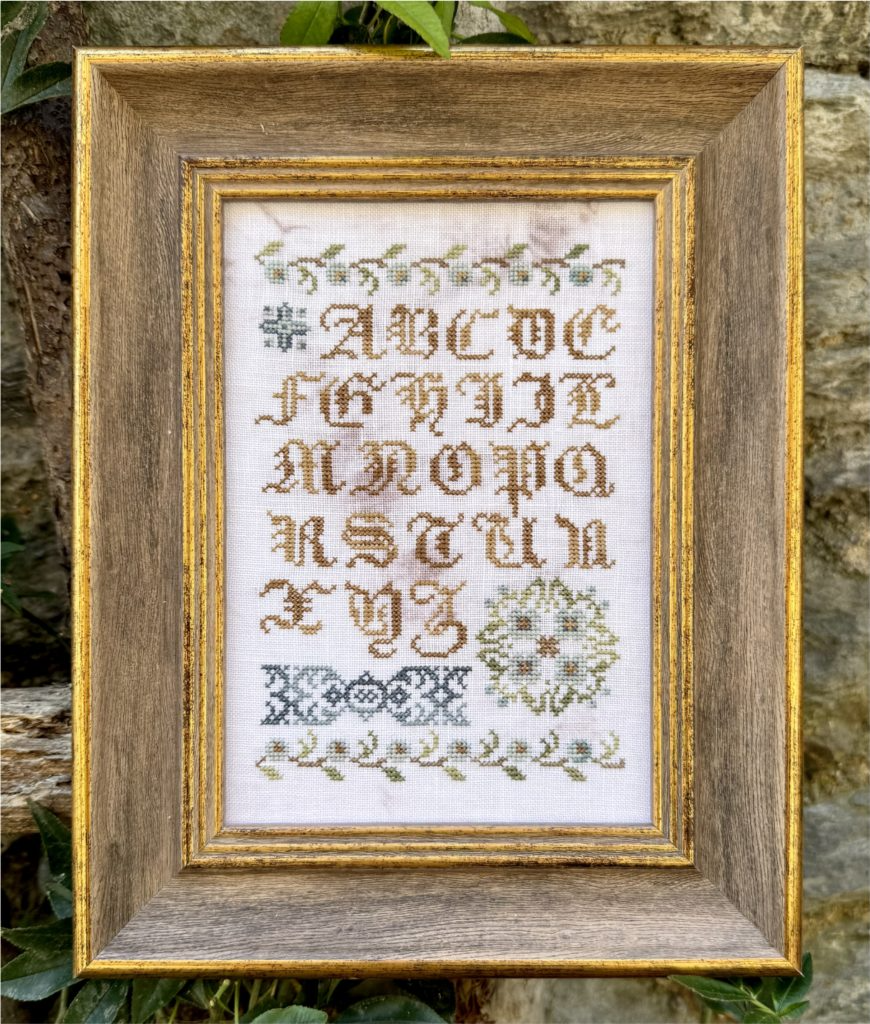 A B C D E
F G H I J L
M N O P Q
R S T U V
X Y Z